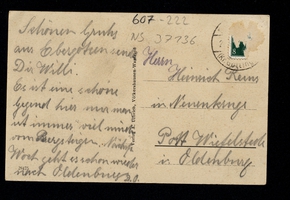 607-222
NS. 37136
Schönen Gruß
aus Ebergötzen sendet
Dir Willi.
Es ist eine schöne
Gegend hier nur man
ist immer viel müde
vom Bergsteigen. Nächste
Woche geht es schon wieder
nach Oldenburg
Herrn
Heinrich Reins
in Neuenkruge
Post Wiefelstede
in Oldenburg